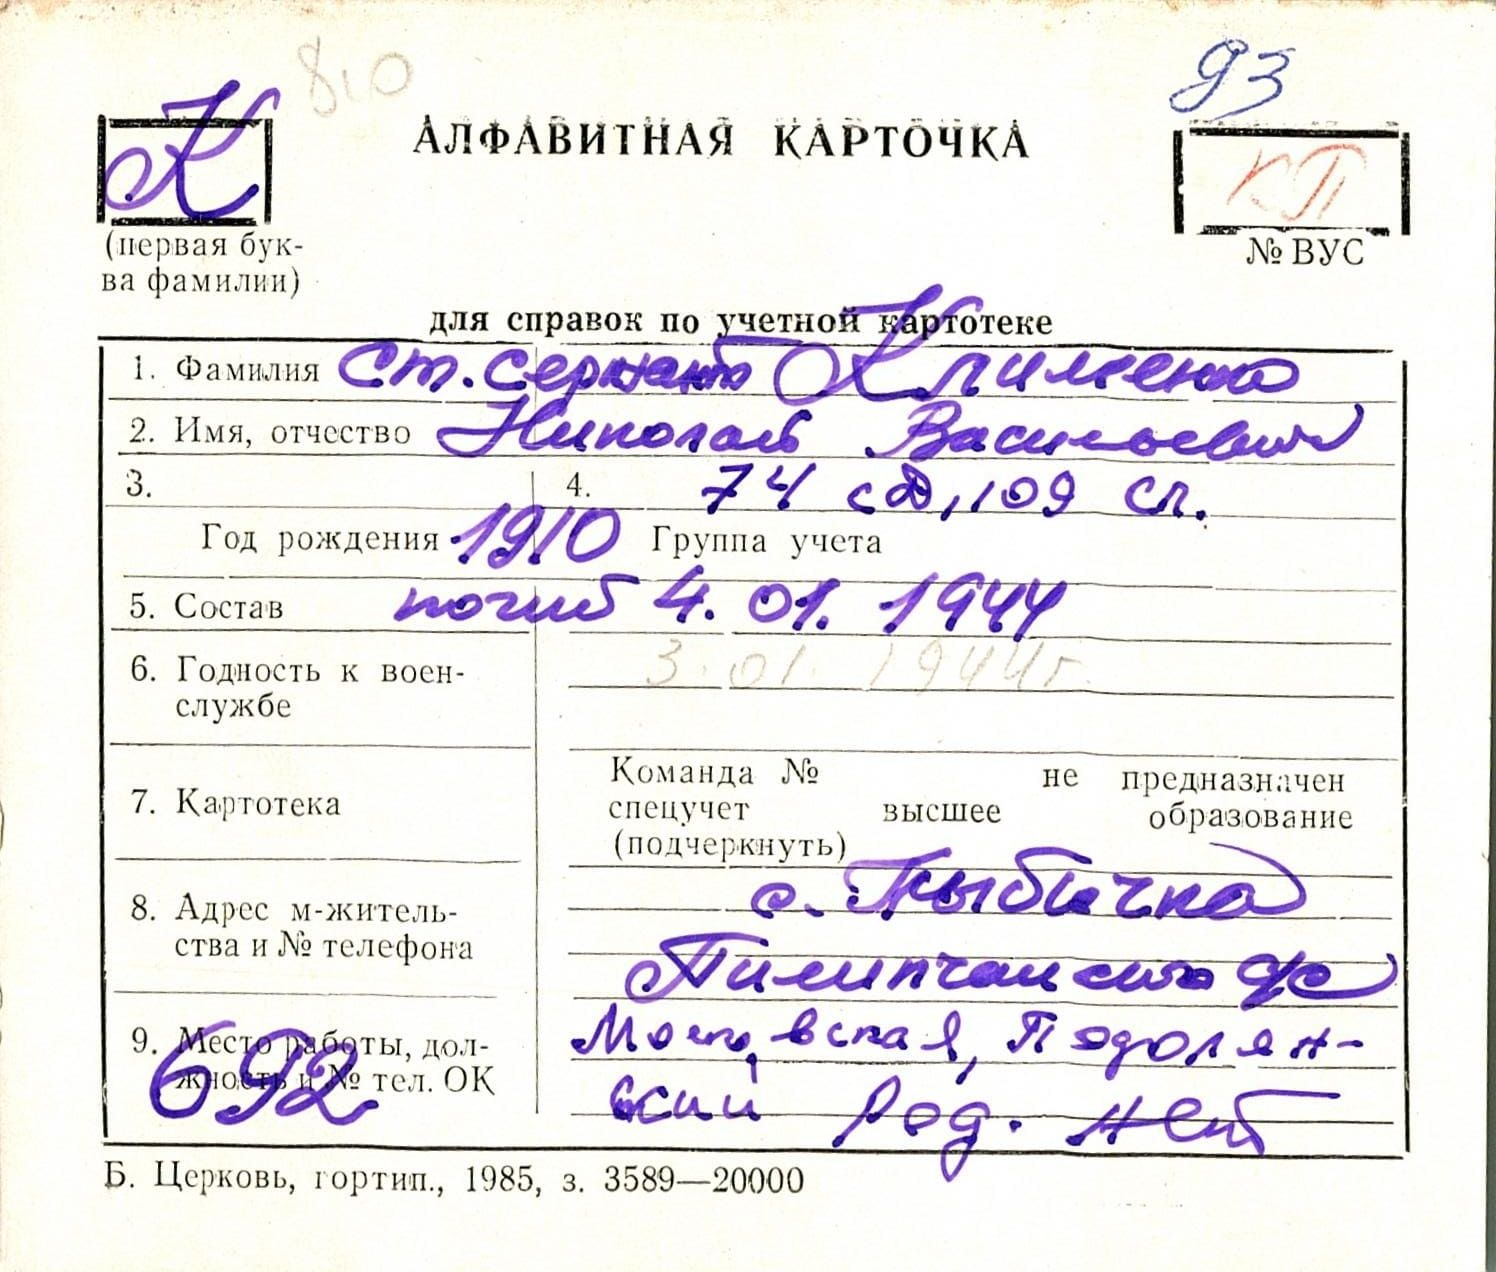 810
93
К
АЛФАВИТНАЯ КАРТОЧКА
КП
(первая бук-
ва фамилии)
№ ВУС
для справок по учетной картотеке
1. Фамилия ст. сержант Клименко
2. Имя, отчество Николай Васильевич
3. 4. 74 сд, 109 сп.
Год рождения 1910 Группа учета
5. Состав погиб 4.01.1944
3.01.1944г.
6. Годность к воен-
службе
7. Картотека
Команда № не предназначен
спецучет высшее образование
(подчеркнуть)
8. Адрес м-житель-
ства и № телефона
с. Кыбичка
9. Место работы, дол-
жность и № тел. ОК
692
Московская, Подолян-
ский Род. нет
Б. Церковь, гортип., 1985, з. 3589—20000